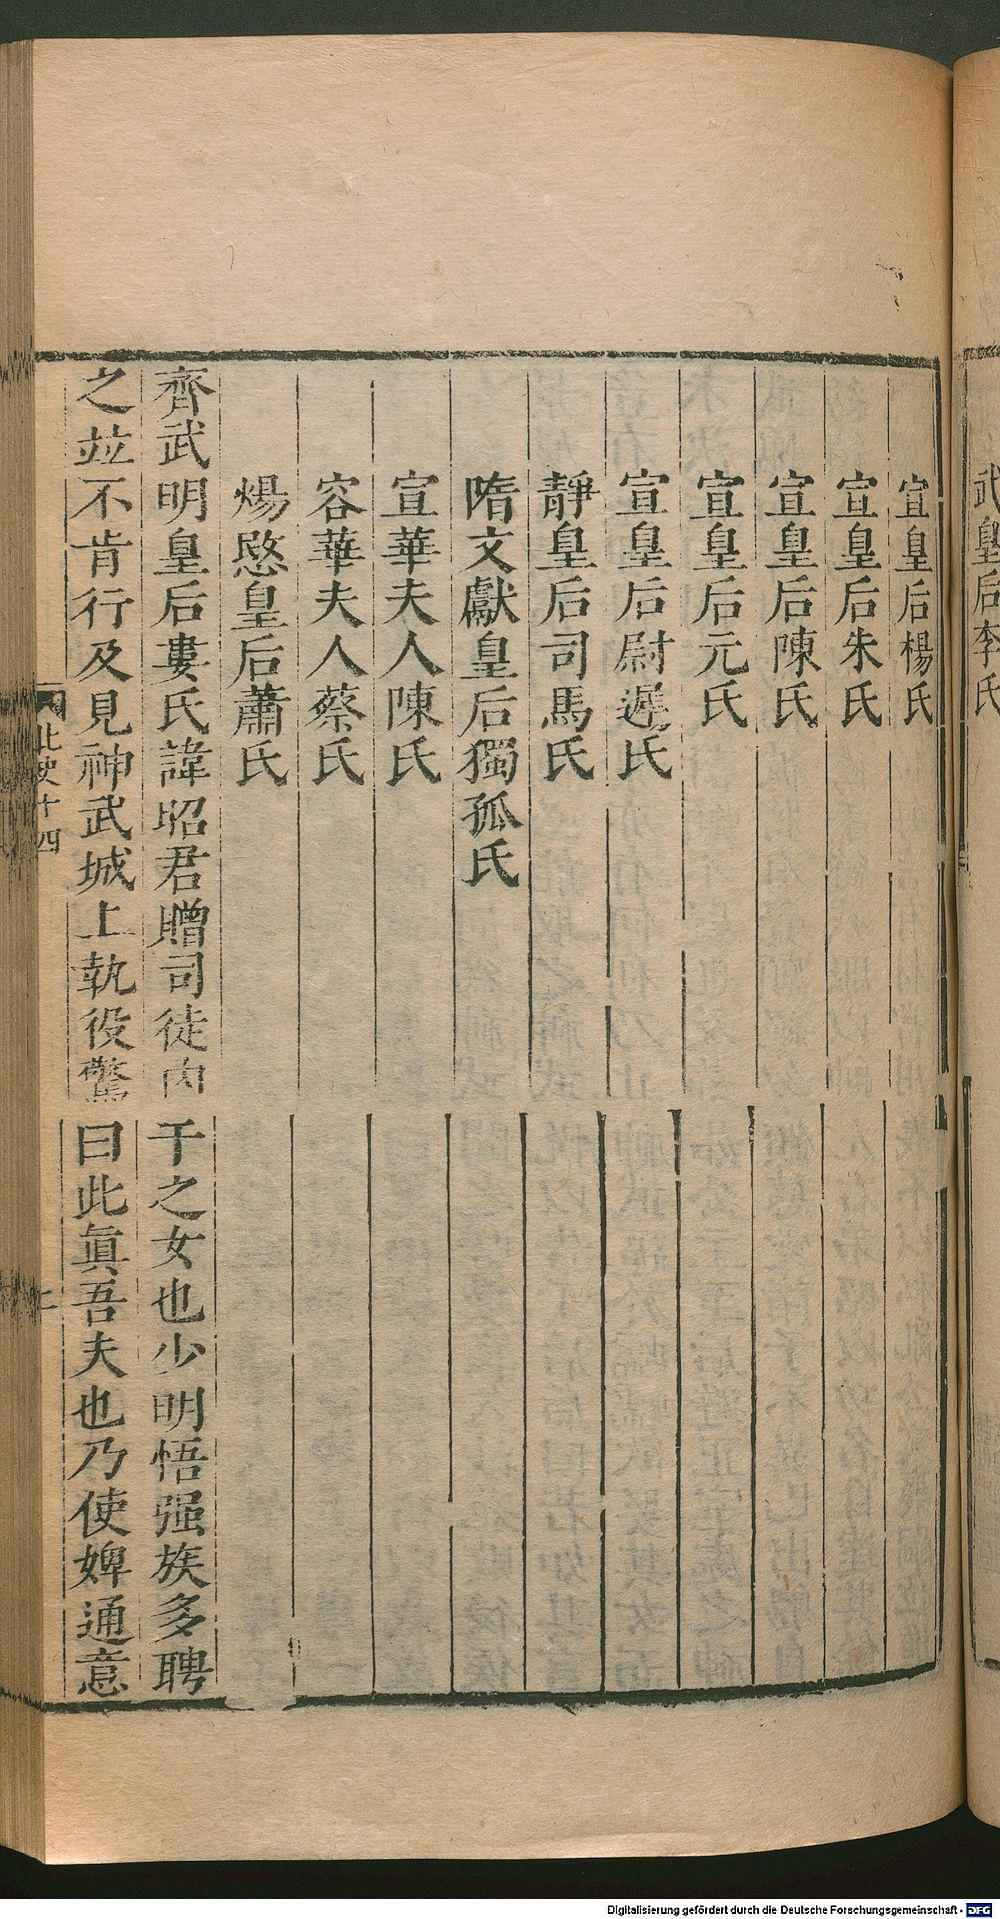 武皇后李氏
宣皇后楊氏
宣皇后朱氏
宣皇后陳氏
宣皇后元氏
宣皇后尉遲氏
靜皇后司馬氏
隋文獻皇后獨孤氏
宣華夫人陳氏
容華夫人蔡氏
煬愍皇后蕭氏
齊武明皇后婁氏諱昭君贈司徒內干之女也少明悟强族多聘
之並不肯行及見神武城上執役驚曰此眞吾夫也乃使婢通意
北史十四
Digitalisierung gefördert durch die Deutsche Forschungsgemeinschaft - DFG